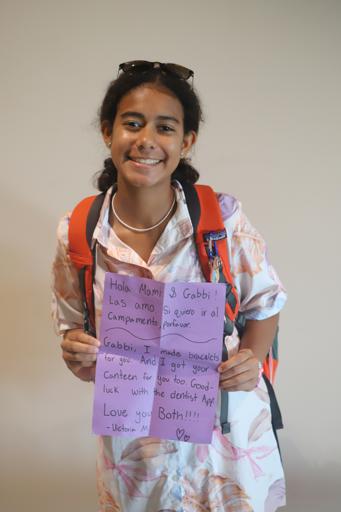 Hola Mami & Gabbi!
Las amo. Si quiero ir al
Campamento, porfavor.
Gabbi, I made bracelets
for you. And I got your
Canteen for you too. Good-
luck with the dentist App.
Love you Both!!!!
- Victoria M.